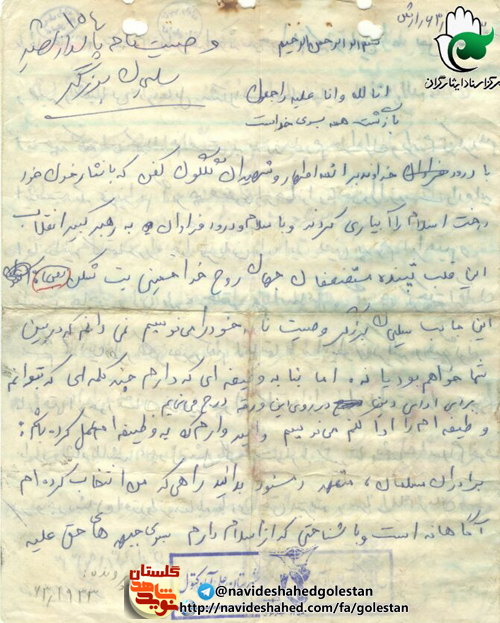 بسم الله الرحمن الرحیم
وصیت نامه پاسدار شهید
سلیمان برزگر
انا لله و انا علیه راجعون
بازگشت همه بسوی خداست
با درود خداوند بر ائمه اطهار و شهیدان گلگون کفن که با نثار خون خود
درخت اسلام را آبیاری کردند و با سلام و درود فراوان به رهبر کبیر انقلاب
این قلب تپنده مستضعفان جهان روح خدا خمینی بت شکن
این جانب سلیمان برزگر وصیت نامه خود را می نویسم نمی دانم که در بین
شما خواهم بود یا نه، اما بنا به وظیفه ای که دارم چند کلمه ای که بتوانم
برای ادای دین در روی این ورقه درج می نمایم
وظیفه ام را ادا کنم می نویسم و امیدوارم که به وظیفه ام عمل کرده باشم:
برادران مسلمان، متعهد بدانید راهی که من انتخاب کرده ام
آگاهانه است و با شناختی که از اسلام دارم بسوی جبهه های حق علیه
مرکز اسناد ایثارگران
گلستان
نوید شاهد
@navideshahedgolestan
http://navideshahed.com/fa/golestan